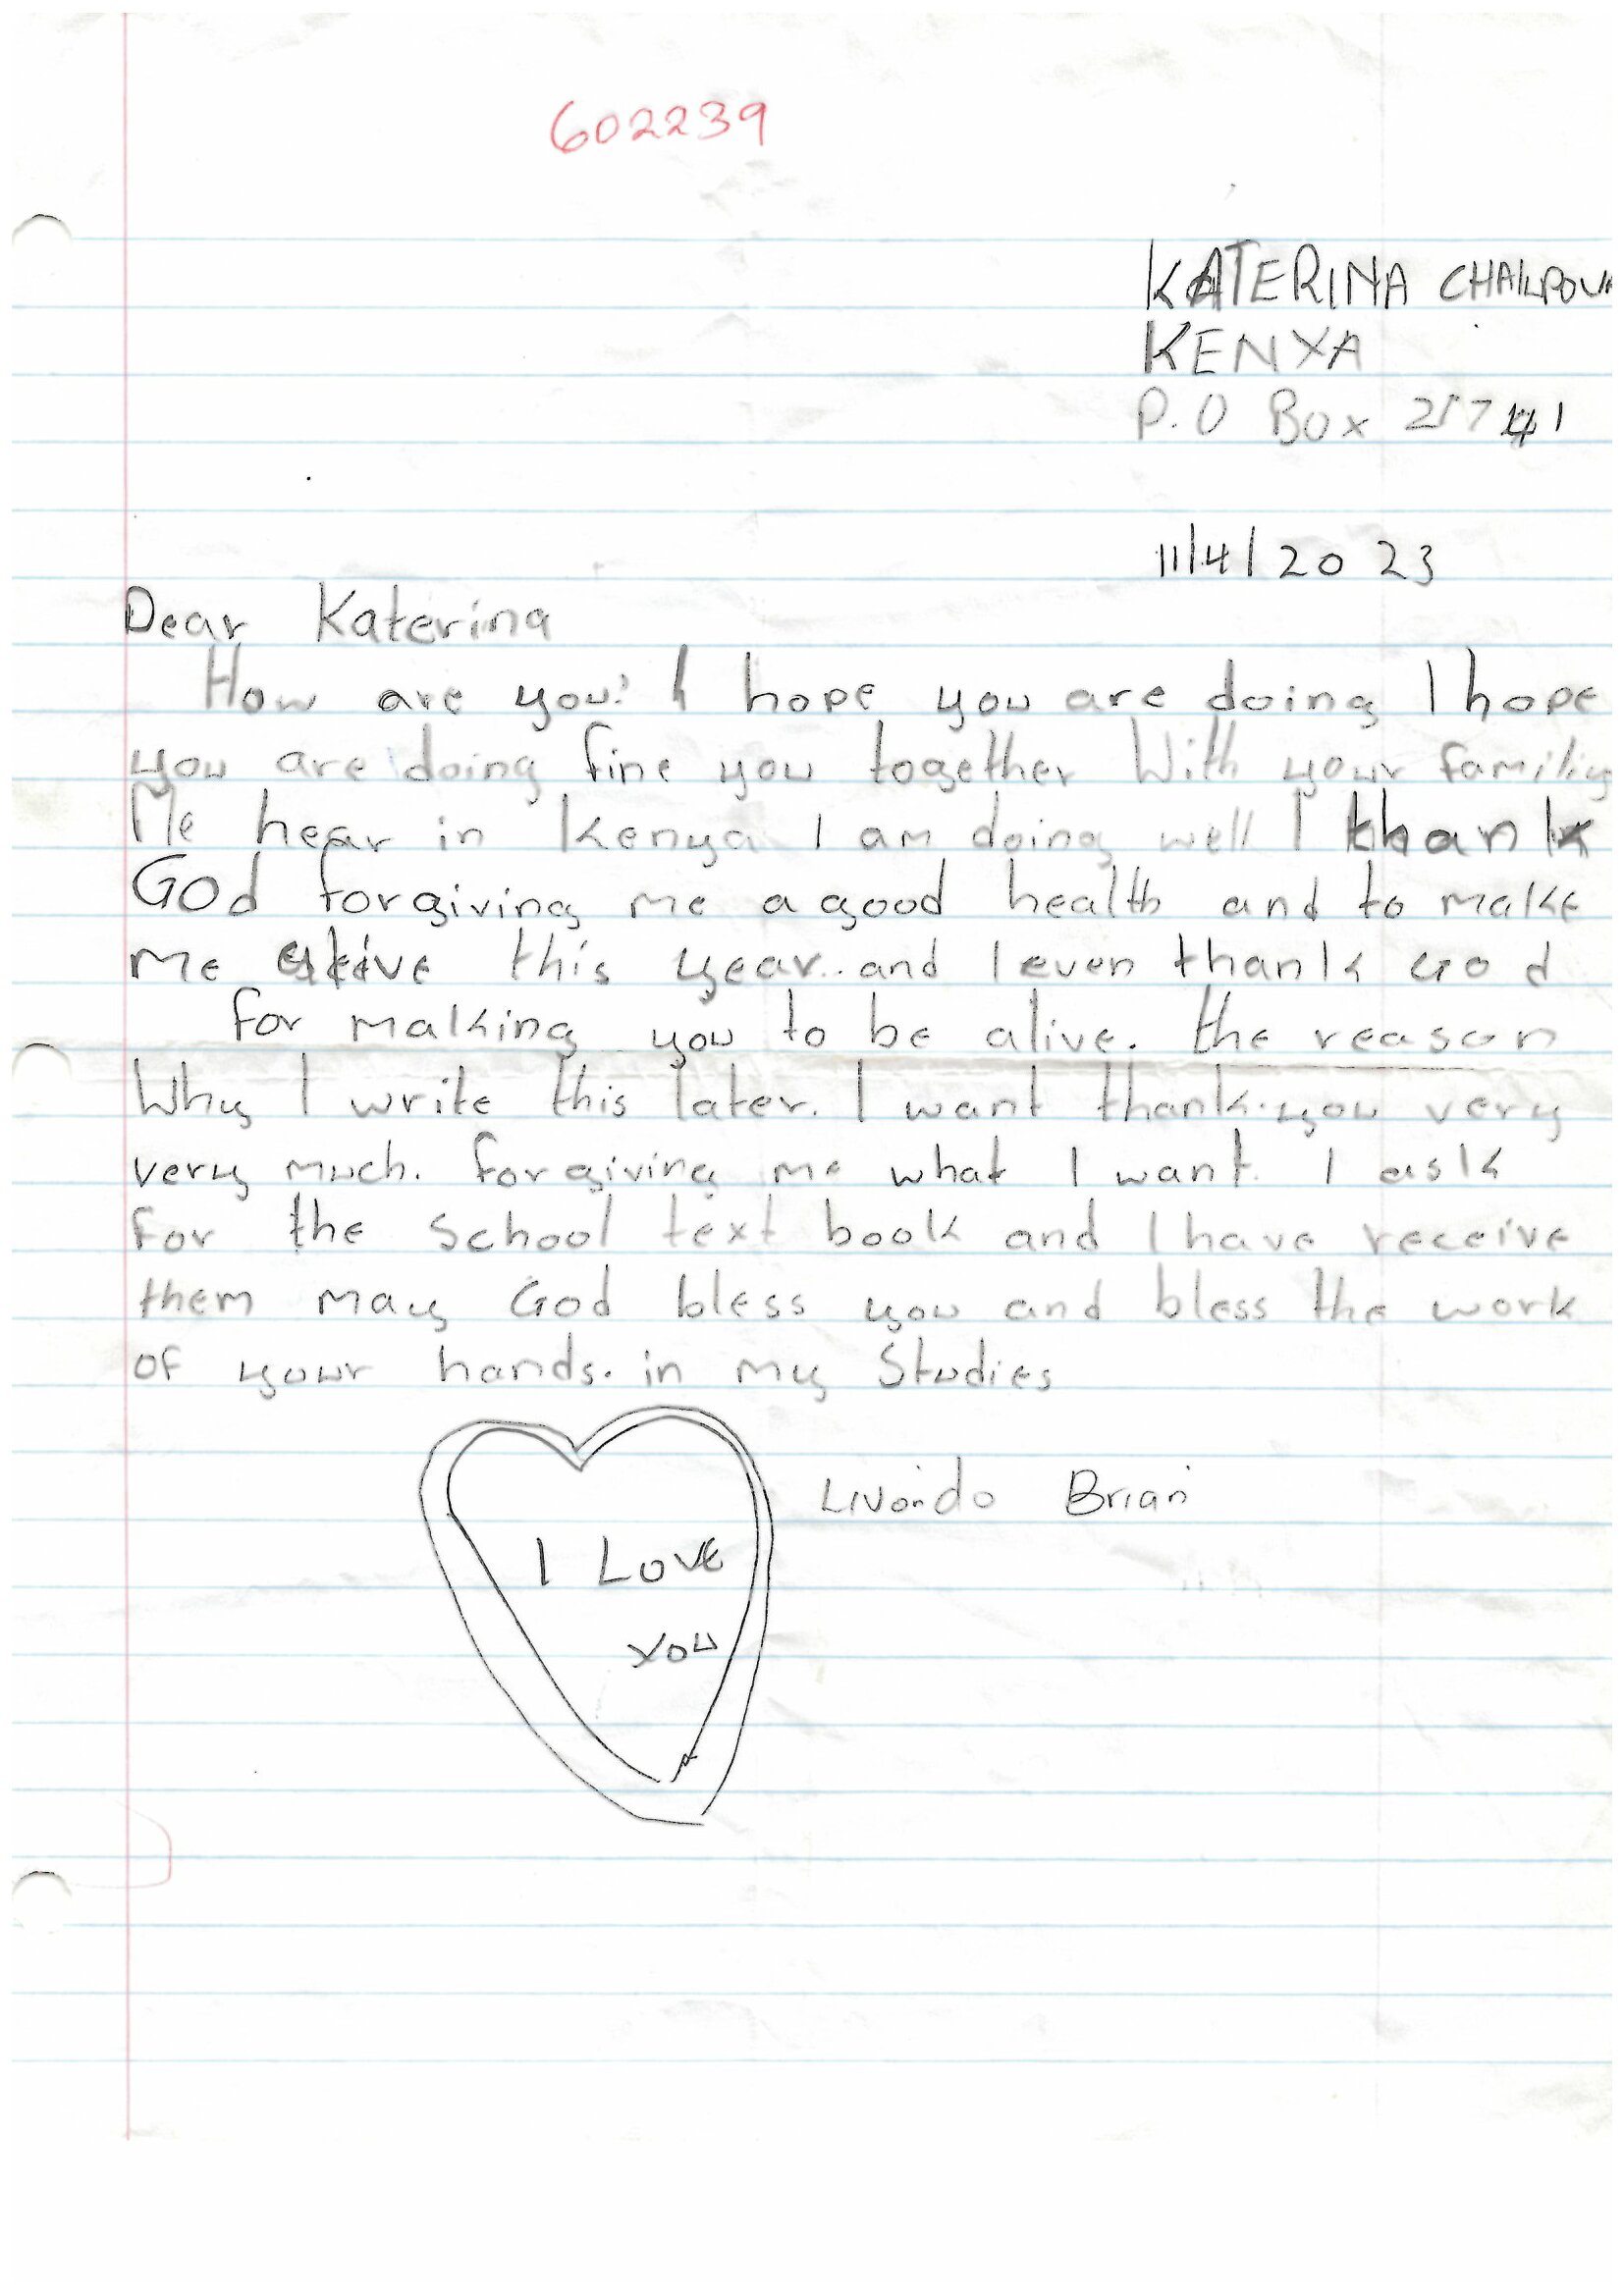 602239
KATERINA
KENYA
P.O Box
11/4/2023
Dear Katerina
How are you? I hope you are doing I hope
you are doing fine you together With your familiy
Me hear in Kenya I am doing well I thank
God forgiving me a good health and to make
me this year. and I even thank God
for making you to be alive. the reason
Why I write this later. I want thank you very
very much. for giving me what I want. I ask
for the school text book and I have receive
them may God bless you and bless the work
of your hands. in my Studies
Brian
I LOVE
YOU